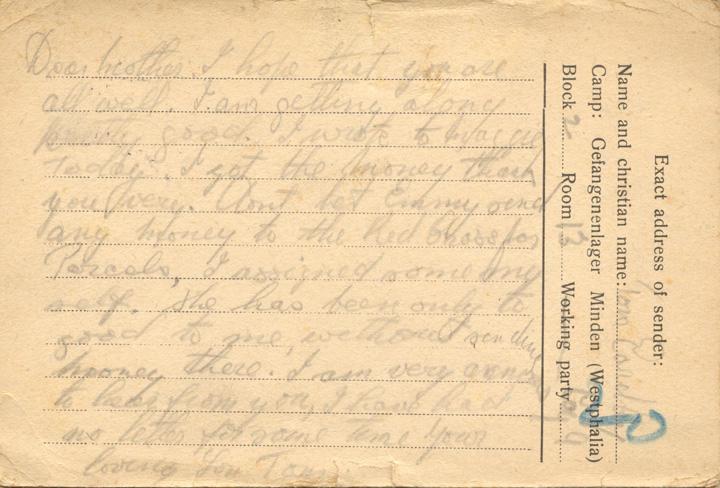 Dear mother I hope that you are
all well. I am getting along
pretty good. I wrote to Maggie
today. I got the money thank
you very. Dont let Emmy send
any money to the Red Cross for
Parcels, I assigned some my
self. She has been only to
good to me, without sending
money there. I am very
to hear from you, I have had
no letter for some time your
loving Son Tom
Exact address of sender:
Name and christian name: Tom
Camp: Gefangenenlager Minden (Westphalia)
Block 2 Room 13 Working party